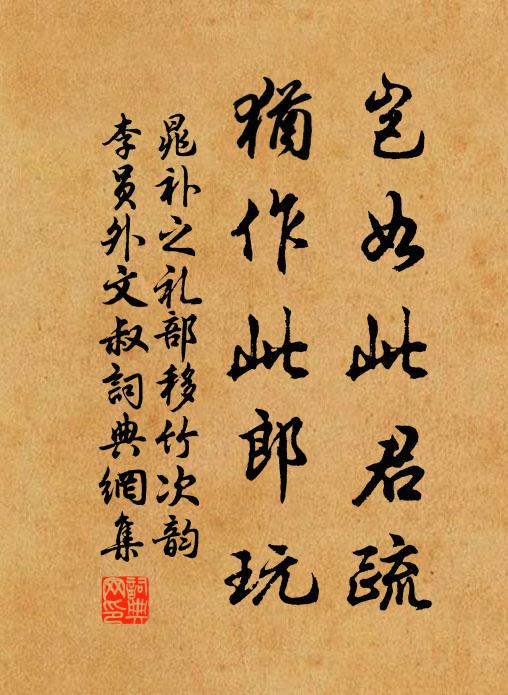 岂如此君疏
猶作此郎玩
晁补之礼部移竹次韵
李員外文叔詞典網集
詞典網印